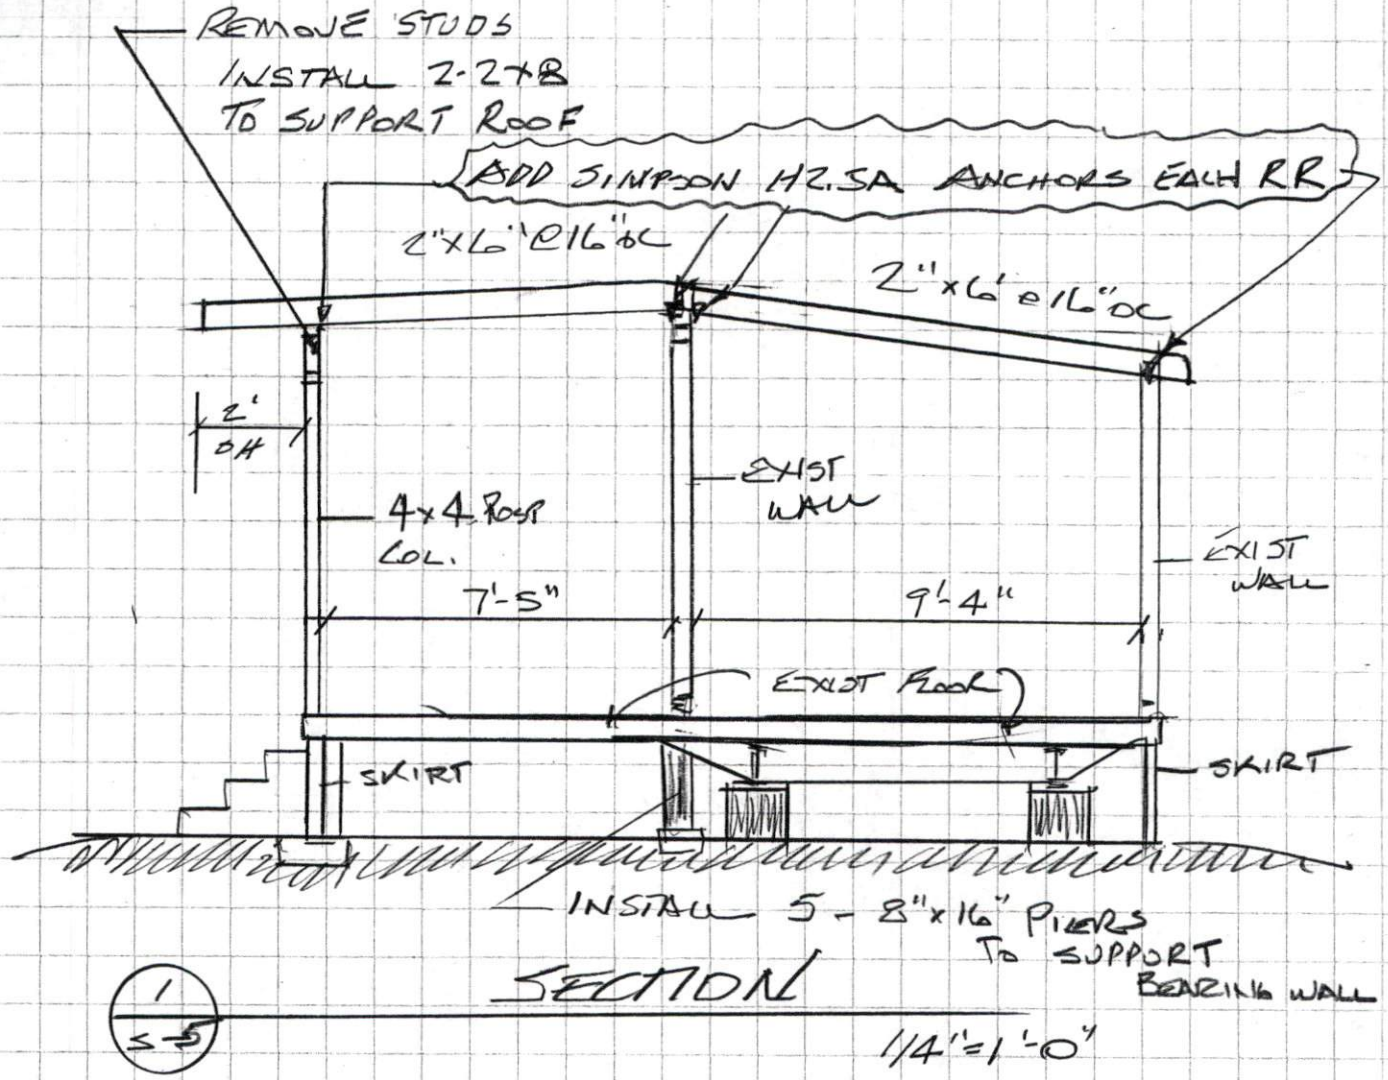 REMOVE STUDS
INSTALL 2-2x8
TO SUPPORT ROOF
ADD SIMPSON H2.5A ANCHORS EACH RR
2"x6" @ 16" OC
2"x6 @ 16" OC
2'
OH
EXIST
WALL
4x4 POST
COL.
EXIST
WALL
7'-5"
9'-4"
EXIST FLOOR
SKIRT
SKIRT
INSTALL 5 - 8"x16" PIERS
TO SUPPORT
BEARING WALL
SECTION
1
S-5
1/4"=1'-0"